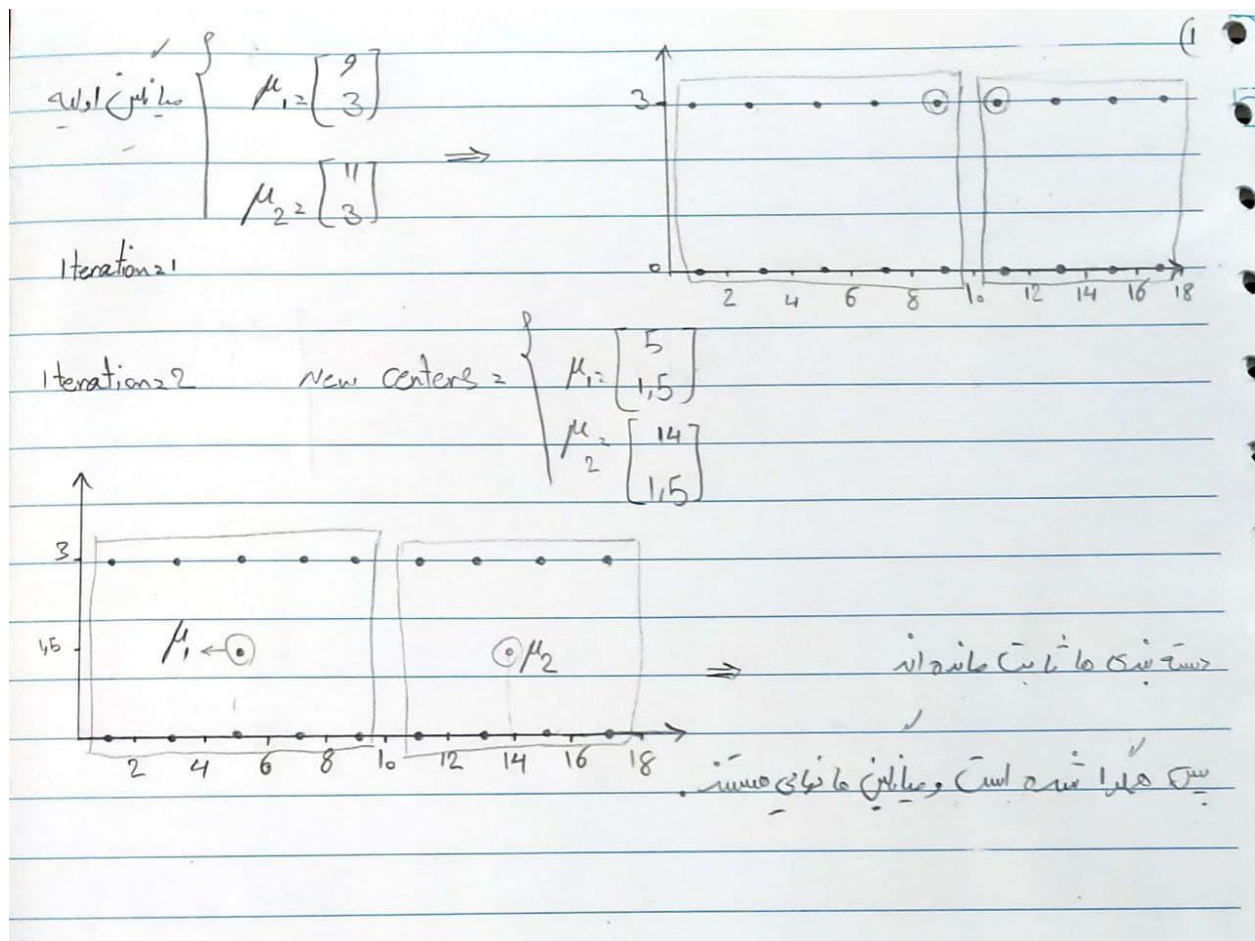 (1
میانگین اولیه { μ₁ = [9 3]
μ₂ = [11 3] ⇒
3
0 2 4 6 8 10 12 14 16 18
Iteration=1
Iteration=2 New centers = { μ₁ = [5 1,5]
μ₂ = [14 1,5]
3
1,5 μ₁ ← μ₂ ⇒ دسته بندی ها ثابت مانده اند
2 4 6 8 10 12 14 16 18
پس همگرا شده است و میانگین ها نهایی هستند.